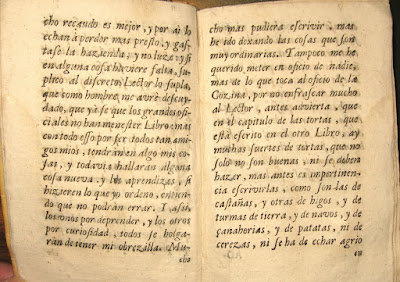 cho recaudo es mejor, y por ài lo
echan à perder mas presto, y gas-
tase la hazienda, y no luze y si
en alguna cosa huviere falta, su-
pleo al discreto Lector lo supla,
que como hombre me avrè descuy-
dado, que yà se que los grandes ofi-
ciales no han menester Libro: mas
con todo esso por ser todos tan ami-
gos mios, tendràn en algo mis co-
sas, y todavia hallaràn alguna
cosa nueva: y los aprendizes, si
hizieren lo que yo ordeno, entien-
do que no podràn errar. Y assi,
los vnos por deprender, y los otros
por curiosidad, todos se holga-
ràn de tener mi obrezilla. Mu-
cho
cho mas pudiera escrivir, mas
he ido dexando las cosas que son
muy ordinarias. Tampoco me he
querido meter en oficio de nadie,
mas de lo que toca al oficio de la
Cozina, por no enfrascar mucho
al Lector, antes advierta, que
en el capitulo de las tortas, que
està escrito en el otro Libro, ay
muchas suertes de tortas, que no
solo no son buenas, ni se deben
hazer, mas antes es impertinen-
cia escrivirlas, como son las de
castañas, y otras de higos, y de
turmas de tierra, y de navos, y de
çanahorias, y de patatas, ni de
cerezas, ni se ha de echar agrio
en